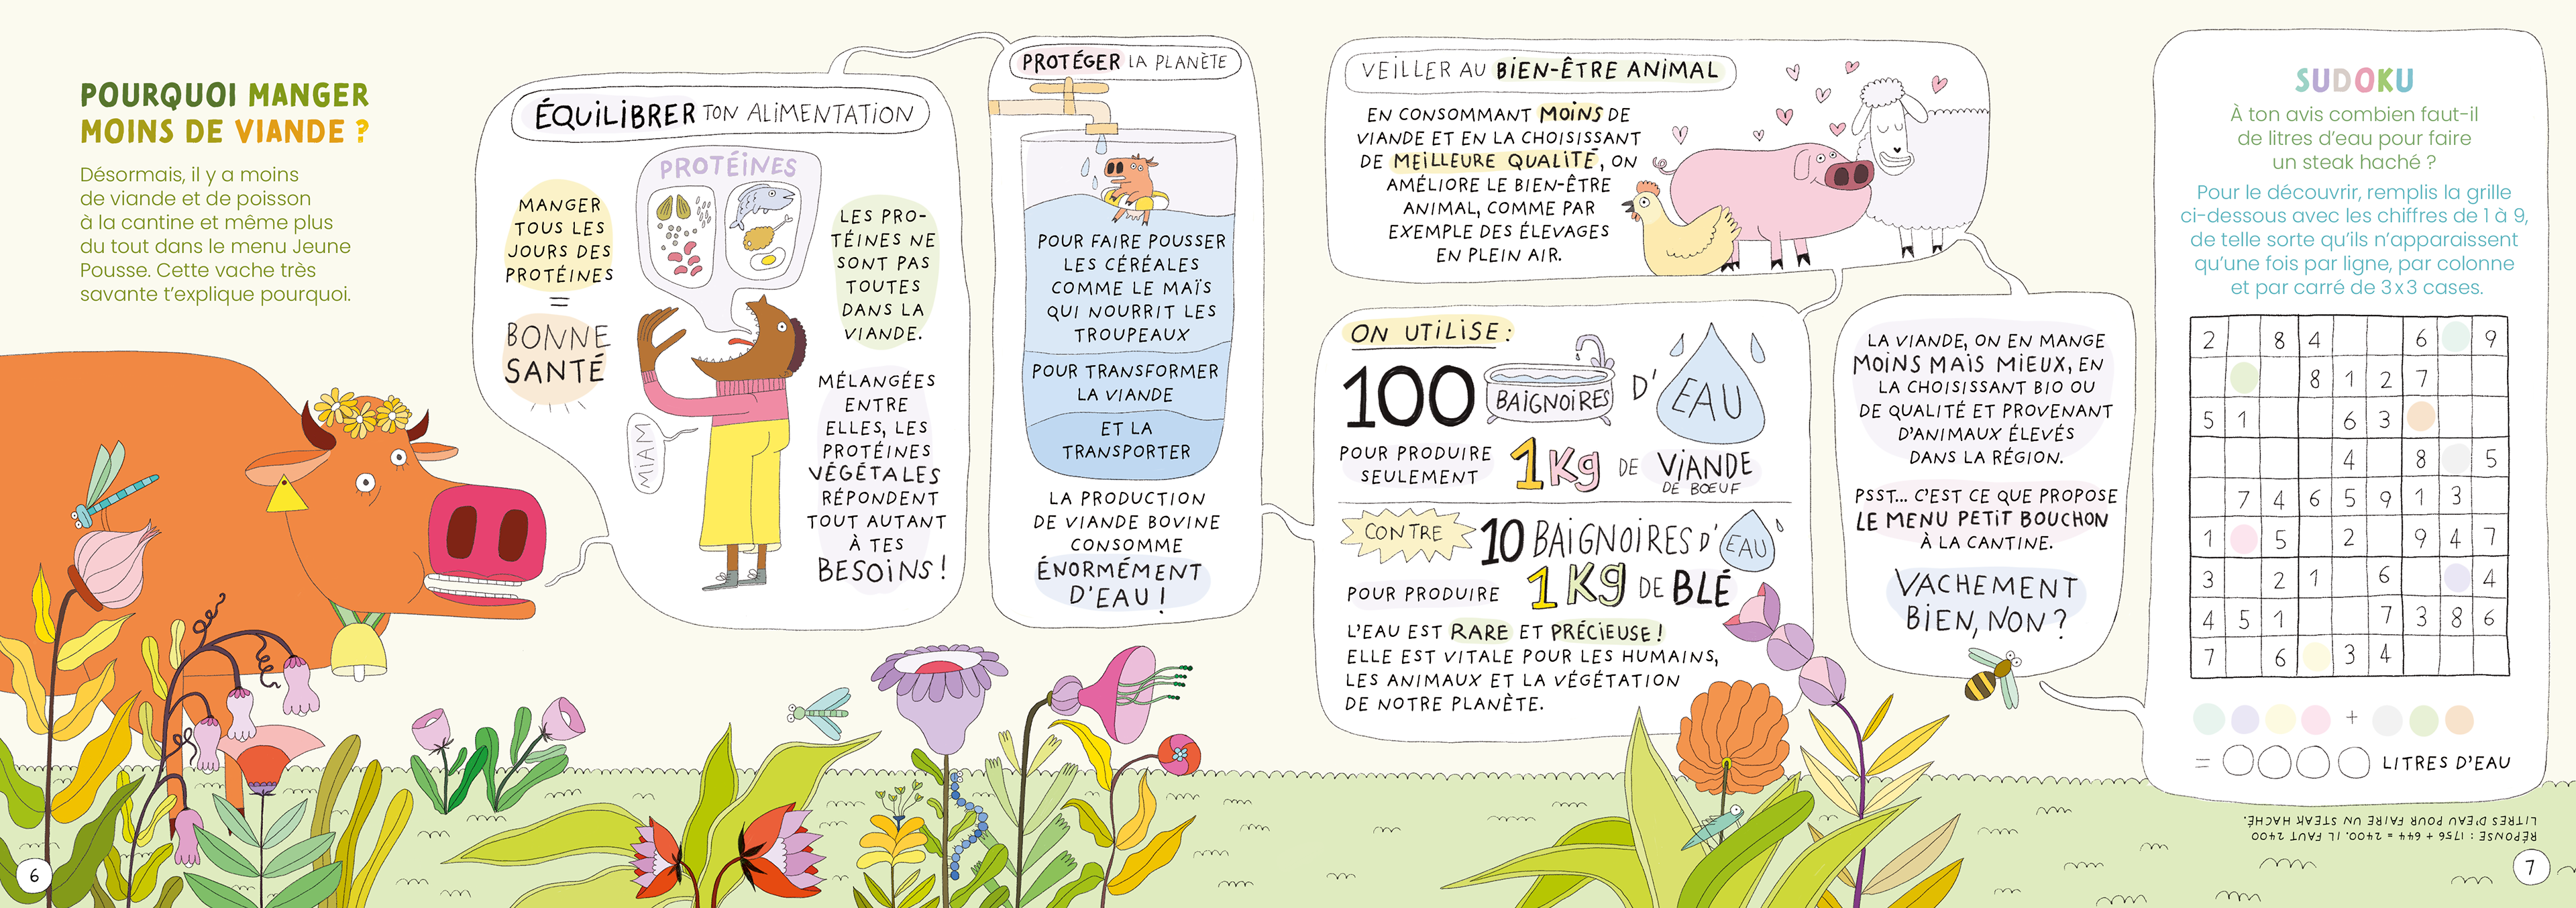 POURQUOI MANGER
MOINS DE VIANDE ?
Désormais, il y a moins
de viande et de poisson
à la cantine et même plus
du tout dans le menu Jeune
Pousse. Cette vache très
savante t'explique pourquoi.
ÉQUILIBRER TON ALIMENTATION
PROTÉINES
MANGER
TOUS LES
JOURS DES
PROTÉINES
=
BONNE
SANTÉ
MIAM
LES PRO-
TÉINES NE
SONT PAS
TOUTES
DANS LA
VIANDE.
MÉLANGÉES
ENTRE
ELLES, LES
PROTÉINES
VÉGÉTALES
RÉPONDENT
TOUT AUTANT
À TES
BESOINS !
PROTÉGER LA PLANÈTE
POUR FAIRE POUSSER
LES CÉRÉALES
COMME LE MAÏS
QUI NOURRIT LES
TROUPEAUX
POUR TRANSFORMER
LA VIANDE
ET LA
TRANSPORTER
LA PRODUCTION
DE VIANDE BOVINE
CONSOMME
ÉNORMÉMENT
D'EAU !
VEILLER AU BIEN-ÊTRE ANIMAL
EN CONSOMMANT MOINS DE
VIANDE ET EN LA CHOISISSANT
DE MEILLEURE QUALITÉ, ON
AMÉLIORE LE BIEN-ÊTRE
ANIMAL, COMME PAR
EXEMPLE DES ÉLEVAGES
EN PLEIN AIR.
ON UTILISE :
100 BAIGNOIRES D'EAU
POUR PRODUIRE
SEULEMENT
1 Kg DE VIANDE
DE BŒUF
CONTRE 10 BAIGNOIRES D'EAU
POUR PRODUIRE 1 Kg DE BLÉ
L'EAU EST RARE ET PRÉCIEUSE !
ELLE EST VITALE POUR LES HUMAINS,
LES ANIMAUX ET LA VÉGÉTATION
DE NOTRE PLANÈTE.
LA VIANDE, ON EN MANGE
MOINS MAIS MIEUX, EN
LA CHOISISSANT BIO OU
DE QUALITÉ ET PROVENANT
D'ANIMAUX ÉLEVÉS
DANS LA RÉGION.
PSST... C'EST CE QUE PROPOSE
LE MENU PETIT BOUCHON
À LA CANTINE.
VACHEMENT
BIEN, NON ?
SUDOKU
À ton avis combien faut-il
de litres d'eau pour faire
un steak haché ?
Pour le découvrir, remplis la grille
ci-dessous avec les chiffres de 1 à 9,
de telle sorte qu'ils n'apparaissent
qu'une fois par ligne, par colonne
et par carré de 3x3 cases.
2 8 4 6 9
8 1 2 7
5 1 6 3
4 8 5
7 4 6 5 9 1 3
1 5 2 9 4 7
3 2 1 6 4
4 5 1 7 3 8 6
7 6 3 4
+
= LITRES D'EAU
RÉPONSE : 1756 + 644 = 2400. IL FAUT 2400
LITRES D'EAU POUR FAIRE UN STEAK HACHÉ.
6
7